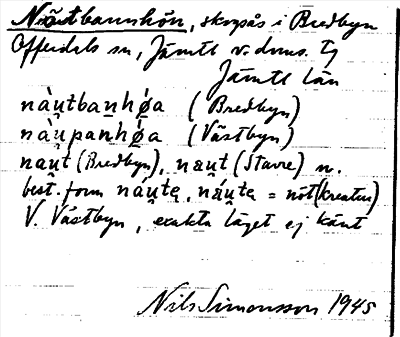 Nötbannhön, skogsås i Bredbyn
Offerdals sn, Jämtl v. dmns. tg
Jämtl län
nàu̯tbaṇhǿa (Bredbyn)
nàu̯paṇhǿa (Västbyn)
nau̯t (Bredbyn), næu̯t (Stavre) n.
best. form náu̯tę, nǽu̯tę = nöt (kreatur)
V. Västbyn, exakta läget ej känt
Nils Simonsson 1945